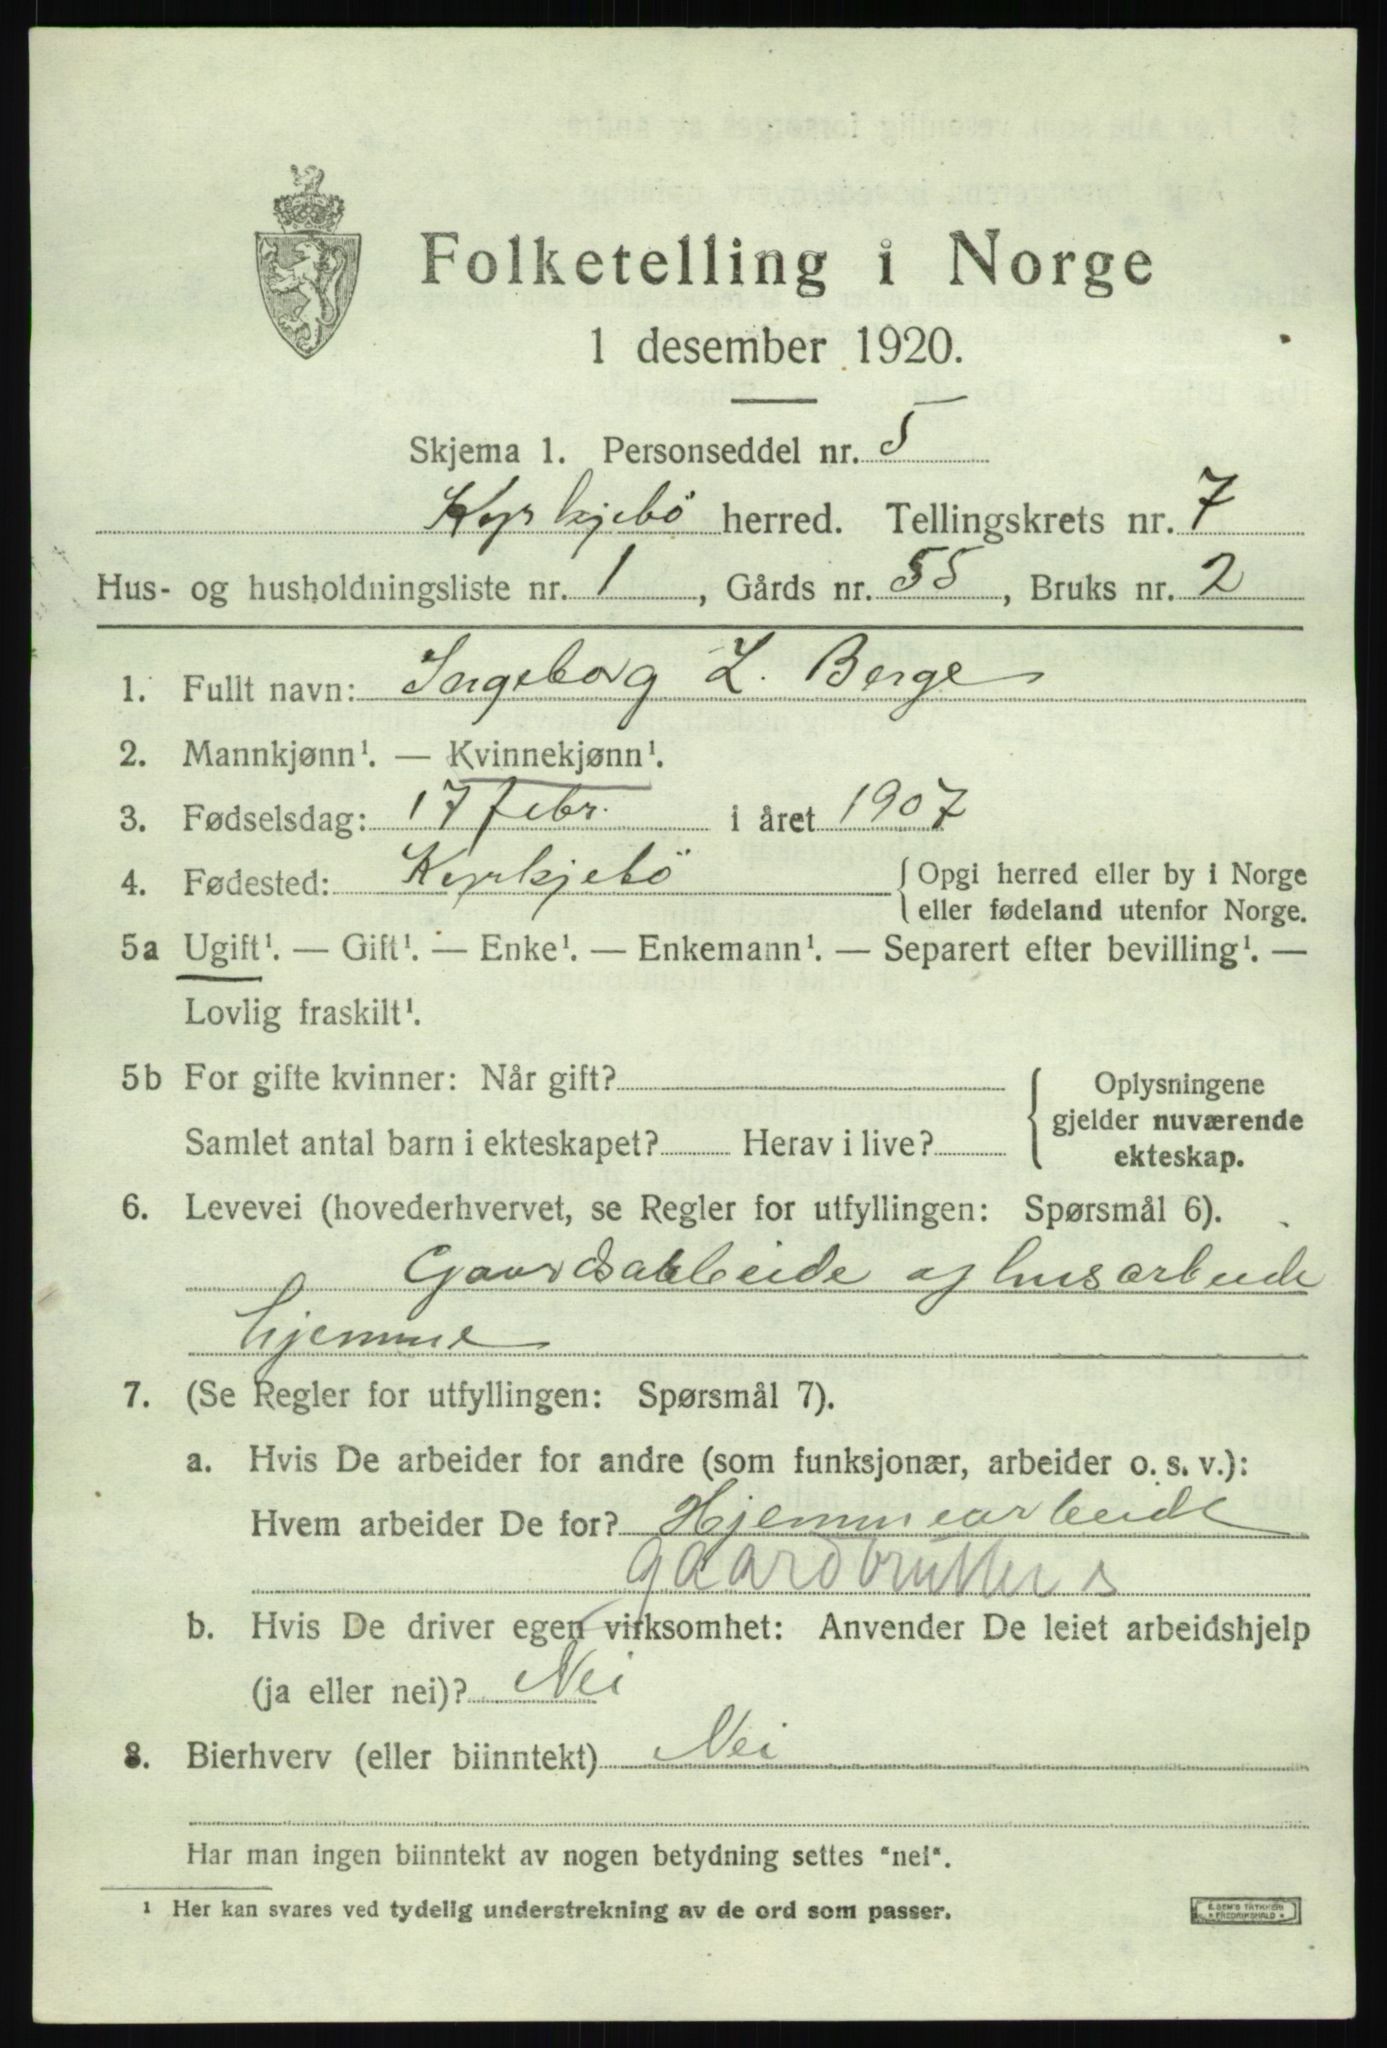 Folketelling i Norge
1 desember 1920.
Skjema 1. Personseddel nr. 5
Kyrkjebö herred. Tellingskrets nr. 7
Hus- og husholdningsliste nr. 1, Gårds nr. 55, Bruks nr. 2
1. Fullt navn: Ingeborg L. Berge
2. Mannkjønn¹. — Kvinnekjønn¹.
3. Fødselsdag: 17 febr. i året 1907
4. Fødested: Kyrkjebö { Opgi herred eller by i Norge
eller fødeland utenfor Norge.
5a Ugift¹. — Gift¹. — Enke¹. — Enkemann¹. — Separert efter bevilling¹. —
Lovlig fraskilt¹.
5b For gifte kvinner: Når gift? { Oplysningene
gjelder nuværende
Samlet antal barn i ekteskapet? Herav i live?
ekteskap.
6. Levevei (hovederhvervet, se Regler for utfyllingen: Spørsmål 6).
Gaardsarbeide og husarbeide
hjemme
7. (Se Regler for utfyllingen: Spørsmål 7).
a. Hvis De arbeider for andre (som funksjonær, arbeider o. s. v.):
Hvem arbeider De for? Hjemmearbeide
b. Hvis De driver egen virksomhet: Anvender De leiet arbeidshjelp
(ja eller nei)? Nei
8. Bierhverv (eller biinntekt) Nei
Har man ingen biinntekt av nogen betydning settes "nei".
¹ Her kan svares ved tydelig understrekning av de ord som passer.